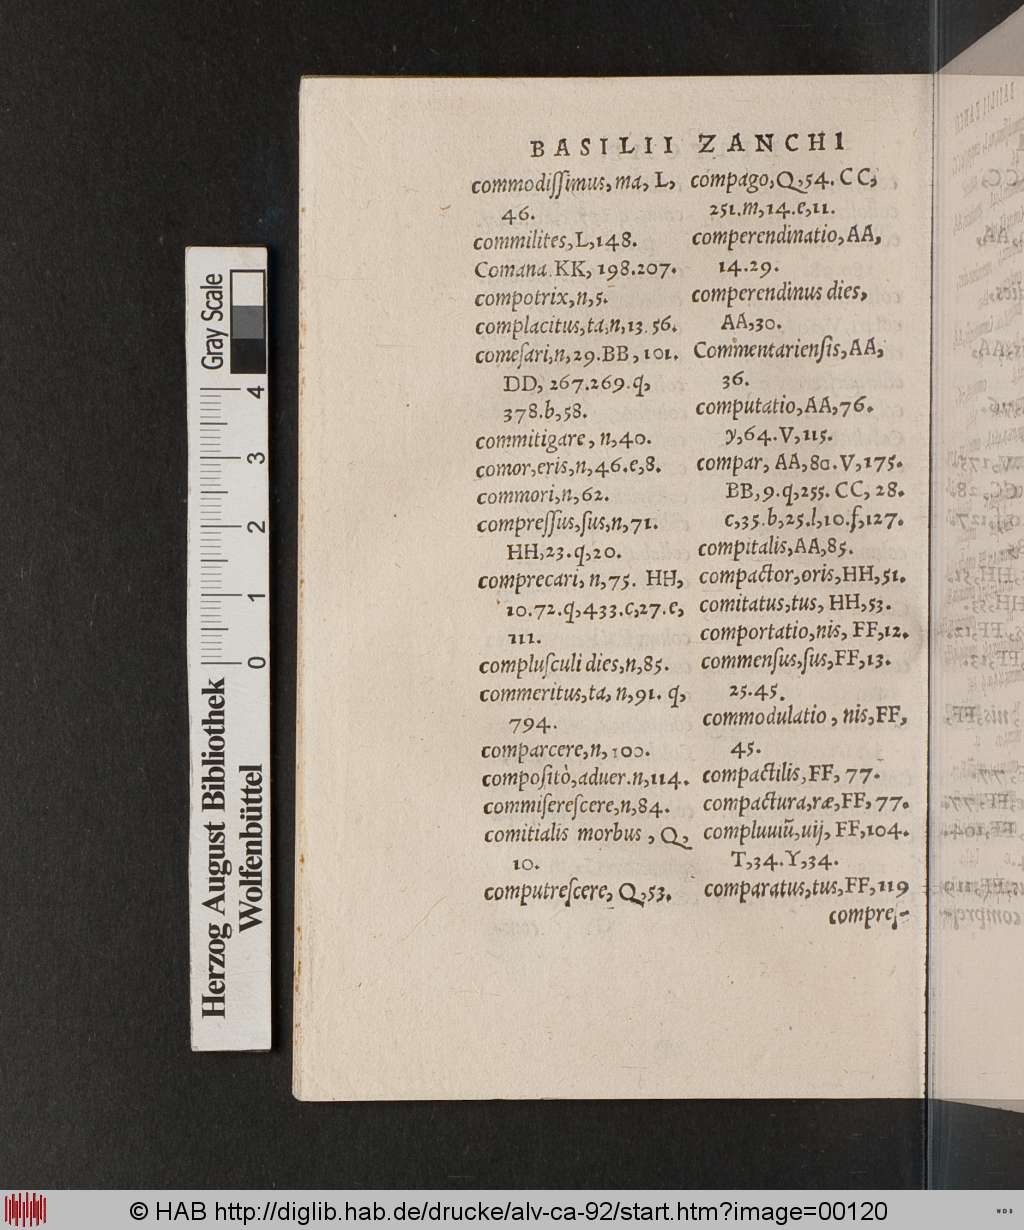 BASILII ZANCHI
commodiſſimus, ma, L,
46.
commilites, L, 148.
Comana. KK, 198.207.
compotrix, n, 5.
complacitus, ta, n, 13.56.
comeſari, n, 29. BB, 101.
DD, 267.269. q,
378. b, 58.
commitigare, n, 40.
comor, eris, n, 46. e, 8.
commori, n, 62.
compreſſus, ſus, n, 71.
HH, 23. q, 20.
comprecari, n, 75. HH,
10.72. q, 433. c, 27. e,
111.
compluſculi dies, n, 85.
commeritus, ta, n, 91. q,
794.
comparcere, n, 100.
compoſitò, aduer. n, 114.
commiſereſcere, n, 84.
comitialis morbus, Q,
10.
computreſcere, Q, 53.
compago, Q, 54. CC,
251. m, 14. e, 11.
comperendinatio, AA,
14.29.
comperendinus dies,
AA, 30.
Commentarienſis, AA,
36.
computatio, AA, 76.
y, 64. V, 115.
compar, AA, 80. V, 175.
BB, 9. q, 255. CC, 28.
c, 35. b, 25. l, 10. f, 127.
compitalis, AA, 85.
compactor, oris, HH, 51.
comitatus, tus, HH, 53.
comportatio, nis, FF, 12.
commenſus, ſus, FF, 13.
25.45.
commodulatio, nis, FF,
45.
compactilis, FF, 77.
compactura, ræ, FF, 77.
compluuiũ, uij, FF, 104.
T, 34. Y, 34.
comparatus, tus, FF, 119
compreſ-
Gray Scale
4
3
2
1
0
Herzog August Bibliothek
Wolfenbüttel
© HAB http://diglib.hab.de/drucke/alv-ca-92/start.htm?image=00120